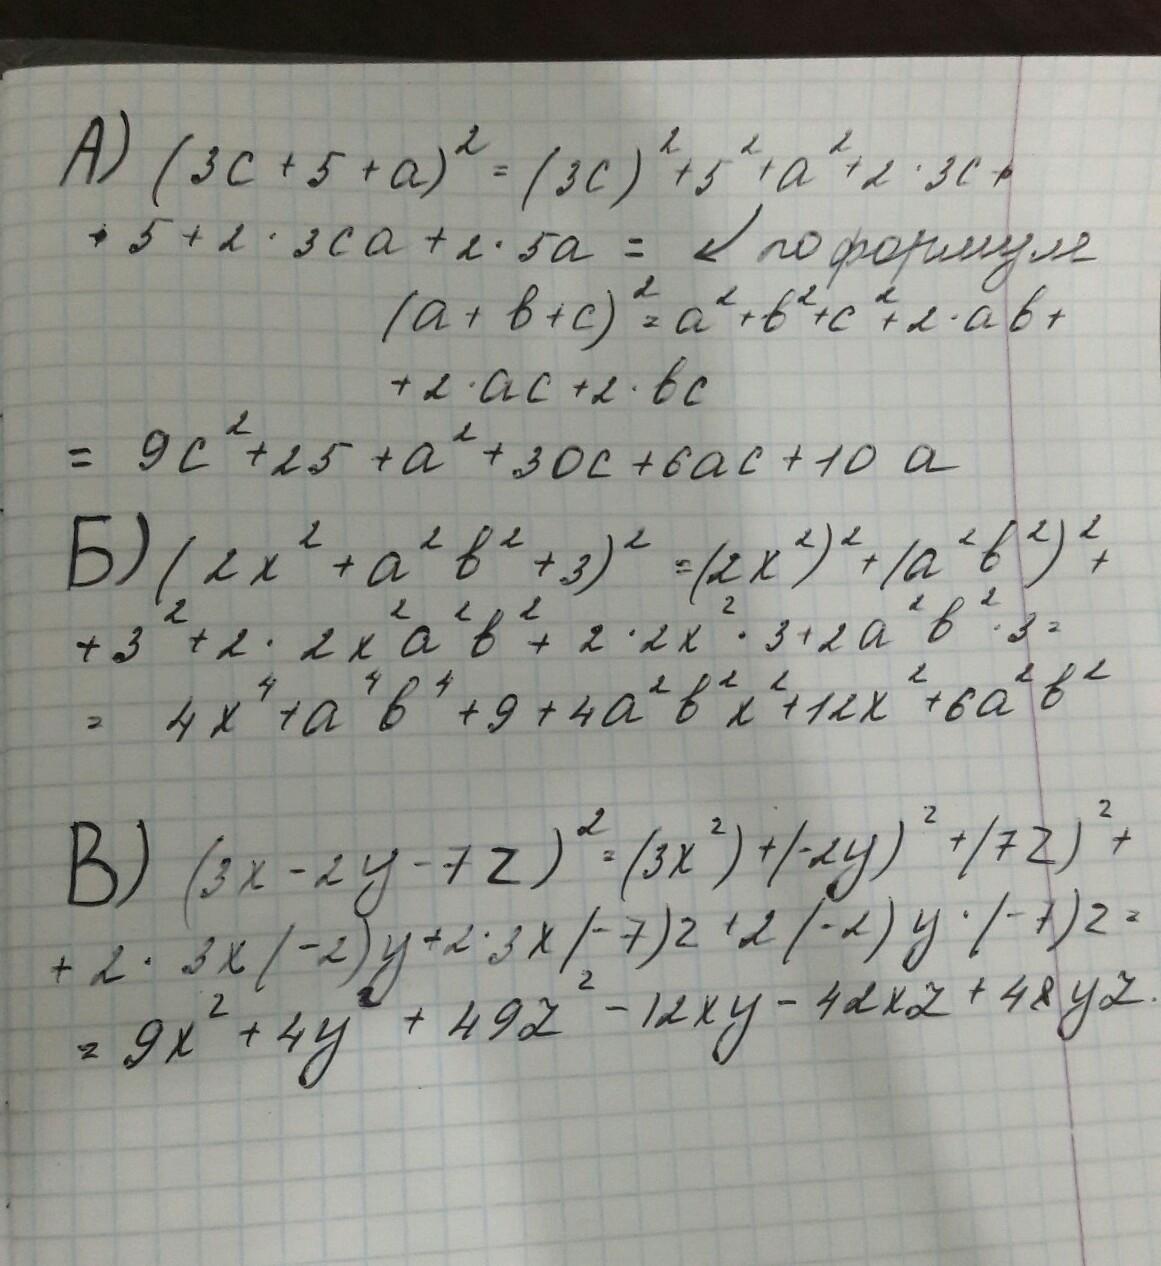 А) (3c + 5 + a)² = (3c)² + 5² + a² + 2 · 3c ·
· 5 + 2 · 3ca + 2 · 5a = ↙ по формуле
(a + b + c)² = a² + b² + c² + 2 · ab +
+ 2 · ac + 2 · bc
= 9c² + 25 + a² + 30c + 6ac + 10a
Б) (2x² + a²b² + 3)² = (2x²)² + (a²b²)² +
+ 3² + 2 · 2x²a²b² + 2 · 2x² · 3 + 2a²b² · 3 =
= 4x⁴ + a⁴b⁴ + 9 + 4a²b²x² + 12x² + 6a²b²
В) (3x - 2y - 7z)² = (3x²) + (-2y)² + (7z)² +
+ 2 · 3x(-2)y + 2 · 3x(-7)z + 2(-2)y · (-7)z =
= 9x² + 4y² + 49z² - 12xy - 42xz + 48yz.